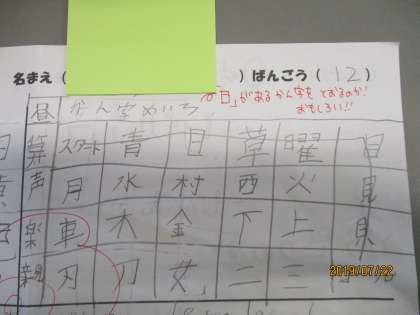 名まえ（　　　）ばんごう（12）
昼 かん字めいろ
「日」があるかん字をとおるのか！
おもしろい!!
算 スタート 青 目 草 曜 日
声 月 水 村 西 火 見
楽 車 木 金 下 上 貝
親 刃 刀 女 二 三
2019/07/22